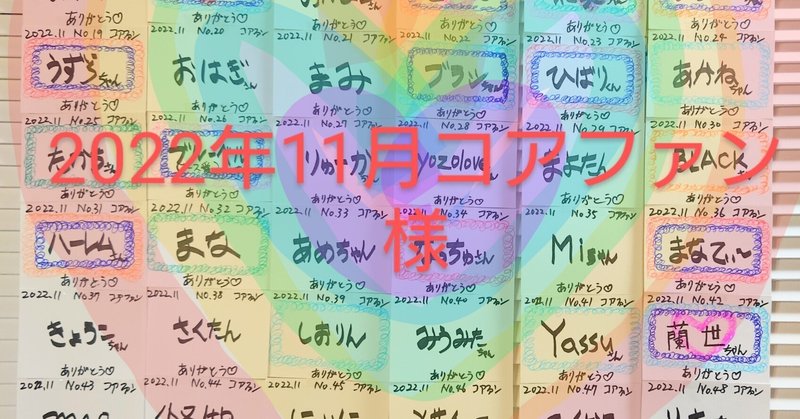 ありがとう♡ ありがとう♡ ありがとう♡ ありがとう♡ ありがとう♡ ありがとう♡
2022.11 No.19 コアファン 2022.11 No.20 2022.11 No.21 コアファン 2022.11 No.22 コアファン 2022.11 No.23 コアファン 2022.11 No.24 コアファン
うずらちゃん おはぎさん まみ ひばりくん あかねちゃん
ありがとう♡ ありがとう♡ ありがとう♡ ありがとう♡ ありがとう♡ ありがとう♡
2022.11 No.25 コアファン 2022.11 No.26 コアファン 2022.11 No.27 コアファン 2022.11 No.28 コアファン 2022.11 No.29 コアファン 2022.11 No.30 コアファン
2022年11月コアファン
様
りゅーか yozolove まよたん BLACK
ありがとう♡ ありがとう♡ ありがとう♡ ありがとう♡ ありがとう♡ ありがとう♡
2022.11 No.31 コアファン 2022.11 No.32 コアファン 2022.11 No.33 コアファン 2022.11 No.34 コアファン 2022.11 No.35 コアファン 2022.11 No.36 コアファン
ハーレムさん まな あめちゃん ちゅさん Miちゃん まなてぃ〜
ありがとう♡ ありがとう♡ ありがとう♡ ありがとう♡ ありがとう♡ ありがとう♡
2022.11 コアファン 2022.11 No.38 コアファン 2022.11 No.39 コアファン 2022.11 No.40 コアファン 2022.11 No.41 コアファン 2022.11 No.42 コアファン
きょうこちゃん さくたん しおりん みうみたちゃん Yassyさん 蘭世ちゃん
ありがとう♡ ありがとう♡ ありがとう♡ ありがとう♡ ありがとう♡ ありがとう♡
2022.11 No.43 コアファン 2022.11 No.44 コアファン 2022.11 No.45 コアファン 2022.11 No.46 コアファン 2022.11 No.47 コアファン 2022.11 No.48 コアファン